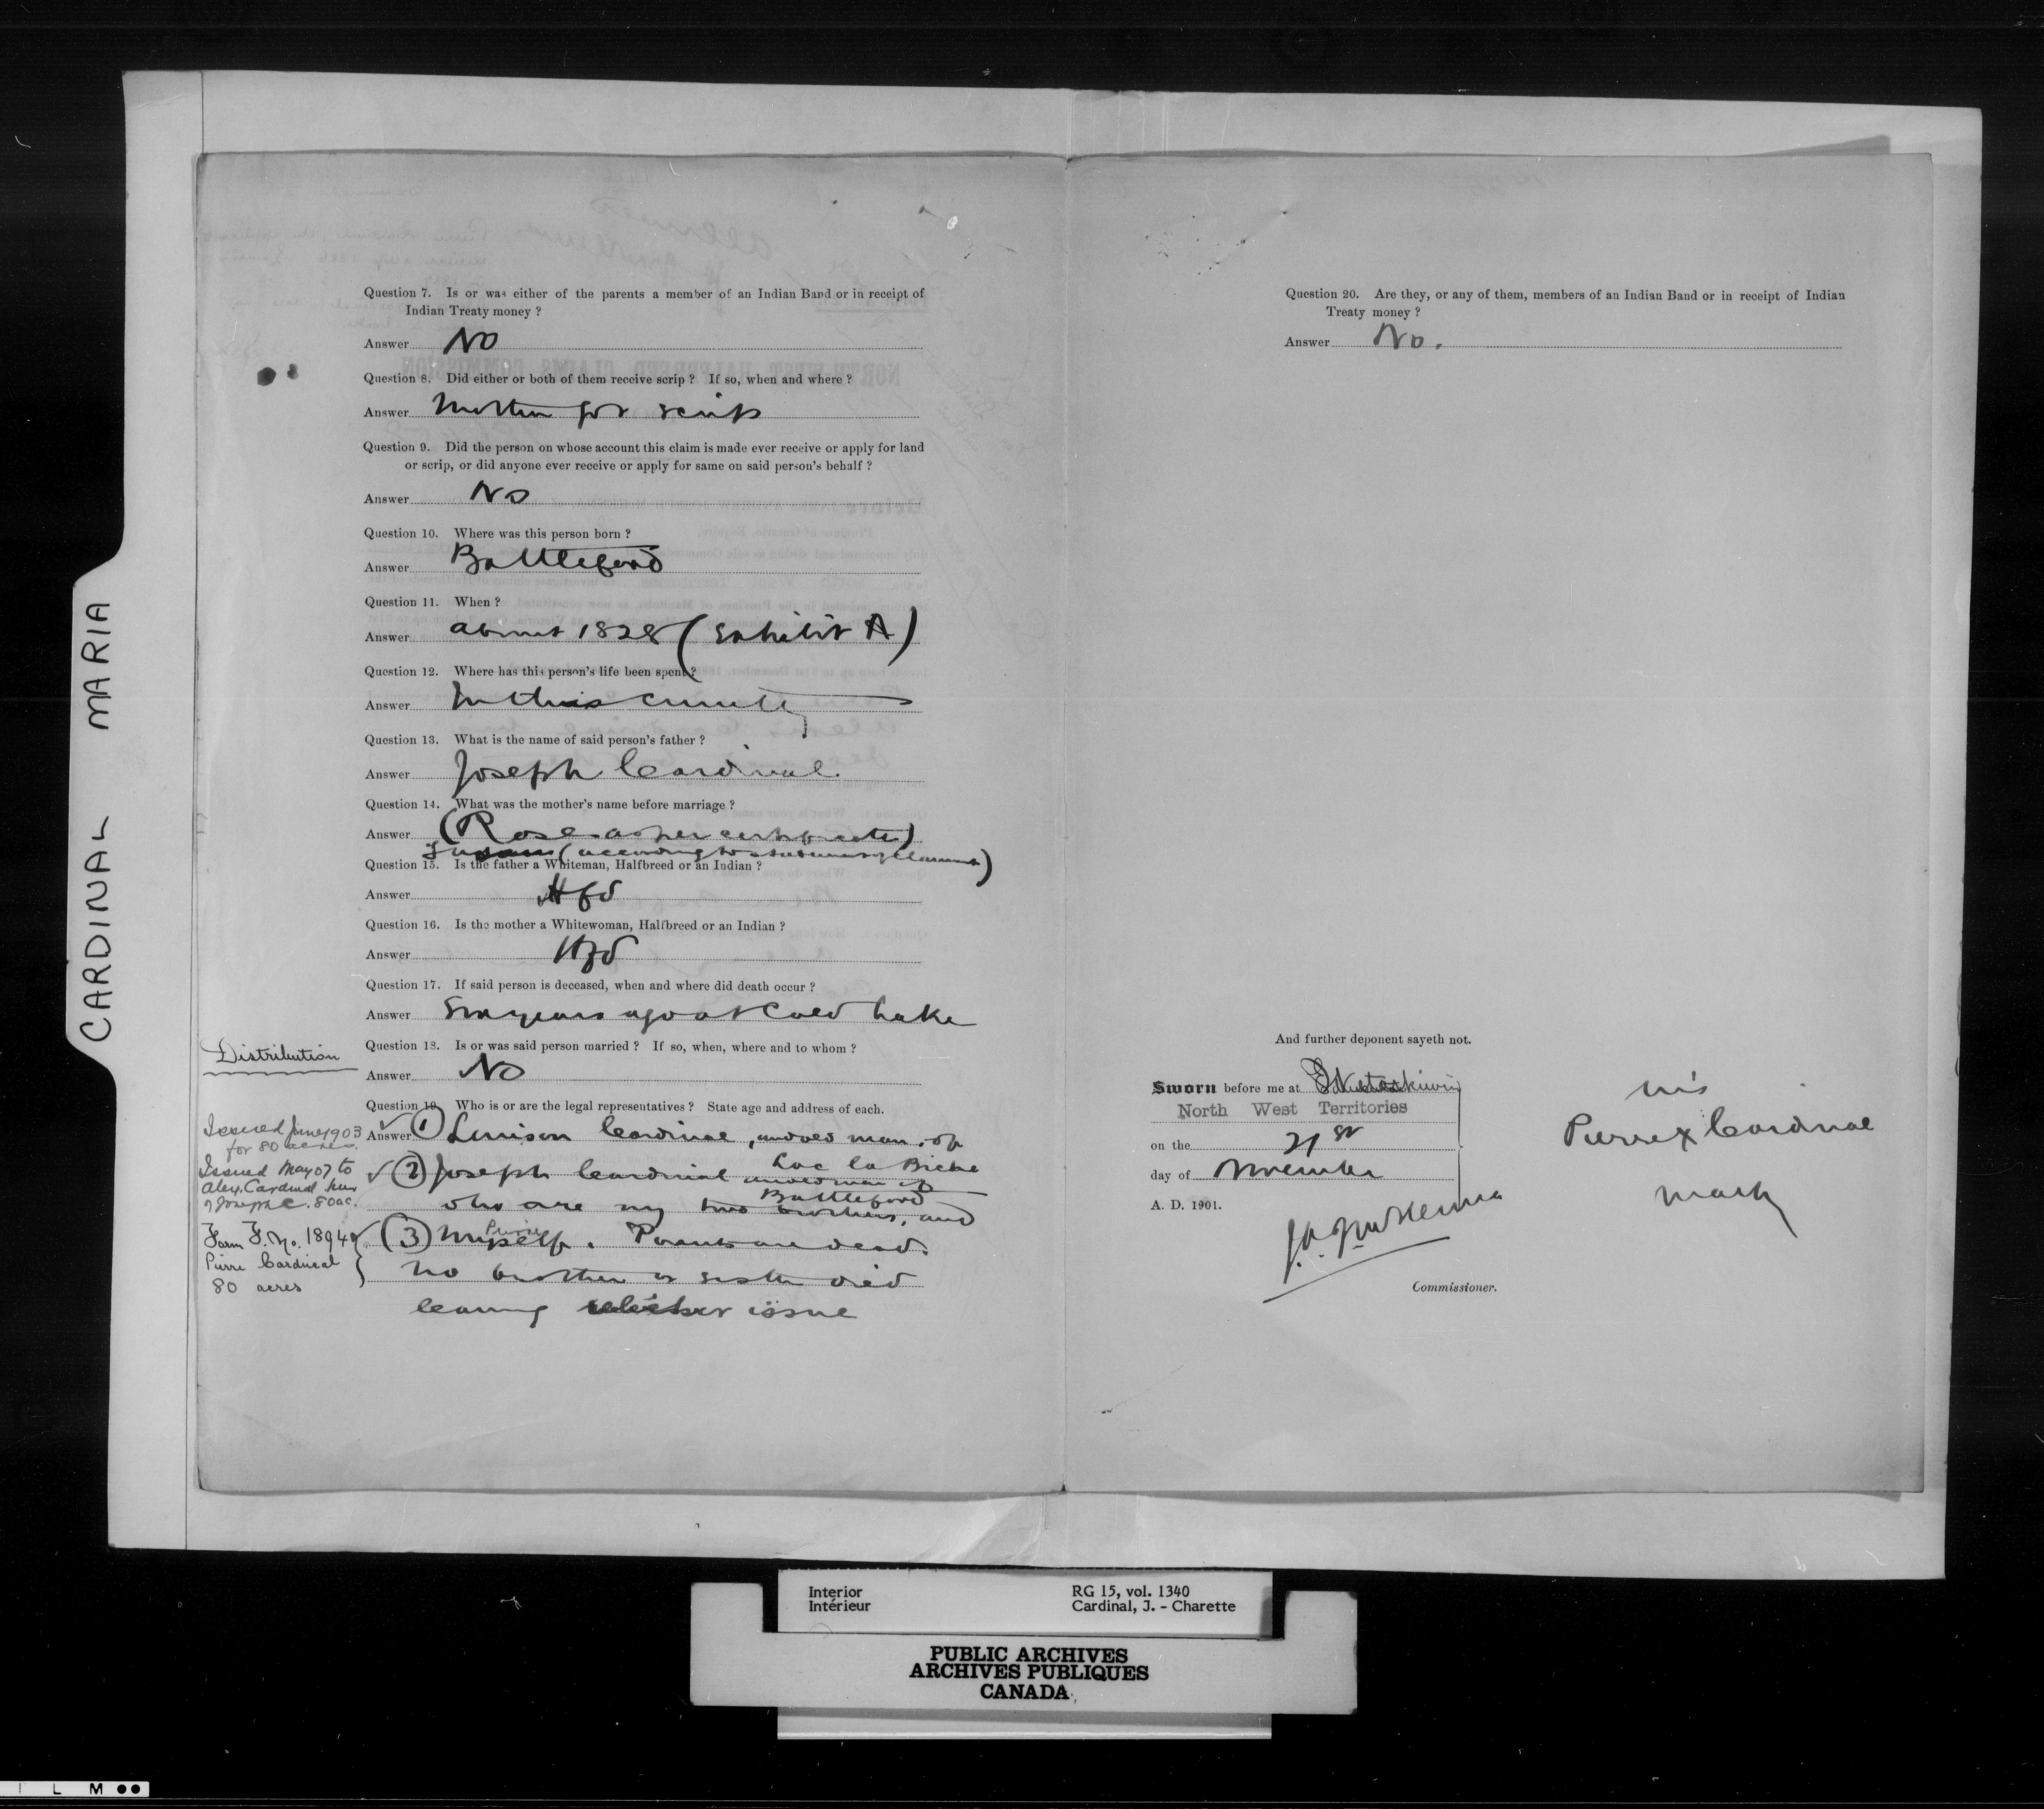 CARDINAL MARIA
Question 7. Is or was either of the parents a member of an Indian Band or in receipt of
Indian Treaty money ?
Answer No
Question 8. Did either or both of them receive scrip ? If so, when and where ?
Answer Mother got scrip
Question 9. Did the person on whose account this claim is made ever receive or apply for land
or scrip, or did anyone ever receive or apply for same on said person's behalf ?
Answer No
Question 10. Where was this person born ?
Answer Battleford
Question 11. When ?
Answer about 1828 (Exhibit A)
Question 12. Where has this person's life been spent ?
Answer In this country
Question 13. What is the name of said person's father ?
Answer Joseph Cardinal.
Question 14. What was the mother's name before marriage ?
Answer (Rose as per certificate)
(according to statement of claimant)
Question 15. Is the father a Whiteman, Halfbreed or an Indian ?
Answer Hfd
Question 16. Is the mother a Whitewoman, Halfbreed or an Indian ?
Answer Hfd
Question 17. If said person is deceased, when and where did death occur ?
Answer Six years ago at Cold Lake
Question 18. Is or was said person married ? If so, when, where and to whom ?
Answer No
Question 19. Who is or are the legal representatives ? State age and address of each.
Answer (1) Louison Cardinal, an old man, of
Lac la Biche
(2) Joseph Cardinal an old man of
Battleford
who are my two brothers, and
(3) Myself. Pierre Parents are dead.
No brother or sister died
leaving issue
Distribution
Issued June 1903
for 80 acres.
Issued May 07 to
Alex. Cardinal heir
of Joseph C. 80 ac.
Form F. No. 1894
Pierre Cardinal
80 acres
Question 20. Are they, or any of them, members of an Indian Band or in receipt of Indian
Treaty money ?
Answer No.
And further deponent sayeth not.
Sworn before me at Wetaskiwin
North West Territories
on the 21st
day of November
A. D. 1901.
Commissioner.
his
Pierre X Cardinal
mark
Interior
Intérieur
RG 15, vol. 1340
Cardinal, J. - Charette
PUBLIC ARCHIVES
ARCHIVES PUBLIQUES
CANADA
I L M